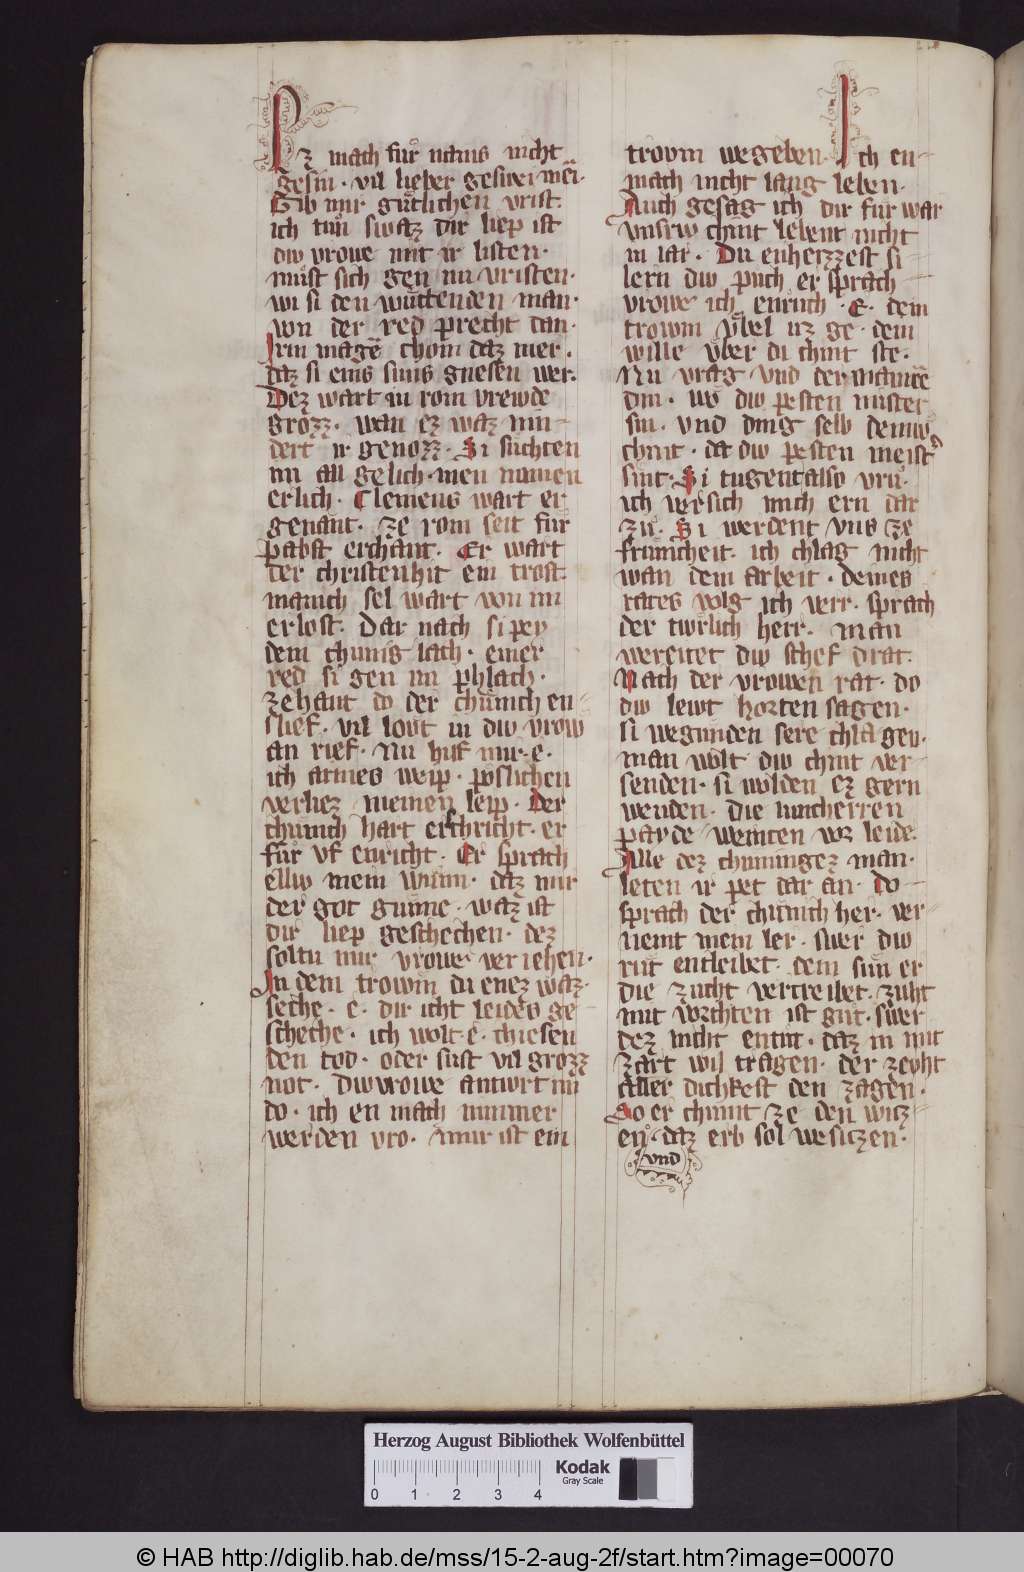 Ez mach fur naws nicht
gesin · vil lieber geswei mei ·
Gib mir gutlichen vrist ·
ich tun swaz dir liep ist
diw vrowe mit ir listen ·
must sich gen im vristen ·
wi si den wuttenden man ·
von der red precht dan ·
Irm magē chom daz mer ·
daz si eins suns gnesen wer ·
Dez wart in rom vrewde
grozz · wan ez waz nin-
dert ir genozz · Si suchten
im all gelich · men namen
erlich · Clemens wart er
genant · ze rom seit fur
pabst erchant · Er wart
der christenhit ein trost ·
manich sel wart von im
erlost · Dar nach si pey
dem chunig lach · einer
red si gen im phlach ·
zehant do der chunich en-
slief · vil lovt in diw vrow
an rief · Nu hilf mir · e ·
ich armes weip · poslichen
verliez meinen leip · Der
chunich hart erschricht · er
fur vf enricht · Er sprach
elliw mein wunn · daz mir
der got gunne · waz ist
dir liep geschechen · dez
soltu mir vrowe veriehen ·
In dem trowm du enez waz ·
seche · e · dir icht leides ge-
scheche · ich wolt · e · chiesen
den tod · oder sust vil grozz
not · Diw vrowe antwrt im
do · ich en mach nimmer
werden vro · Mir ist ein
trovm wegeben · Ich en-
mach nicht lang leben ·
Auch gesag ich dir fur war
vnsriw chint lebent nicht
in iar · Du enhezzest si-
lern diw puch er sprach
vrowe ich enruch · E · dem
trowm vbel irz ge · dein
wille vber di chint ste ·
Nu vrag vnd der mantē
din · wo diw pesten mister
sin · vnd ding selb deiniw
chint · da diw pesten meister
sint · Si tugent also vru ·
ich versich mich ern dar
zu · Si werdent vns ze
frumcheit · ich chlag nicht
wan dem arbeit · deines
rates volg ich verr · sprach
der twrlich herr · man
wereitet diw schef drat ·
Nach der vrowen rat · do
diw lewt horten sagen ·
si wegunden sere chlagen ·
man wolt diw chint ver-
senden · si wolden ez gern
wenden · die iuncherren
payde weinten vor leide ·
Alle dez chuniges man ·
leten ir pet dar an · Do
sprach der chunich her · ver-
nemt mein ler · swer diw
rut entleibet · dem sun er
die zucht vertreibet · zuht
mit vorchten ist gut · swer
dez nicht entut · daz in mit
zart wil tragen · der zevht
aller dichkest den zagen ·
So er chumt ze den witz-
en · daz erb sol wesitzen ·
vnd
Herzog August Bibliothek Wolfenbüttel
Kodak
Gray Scale
0 1 2 3 4
© HAB http://diglib.hab.de/mss/15-2-aug-2f/start.htm?image=00070